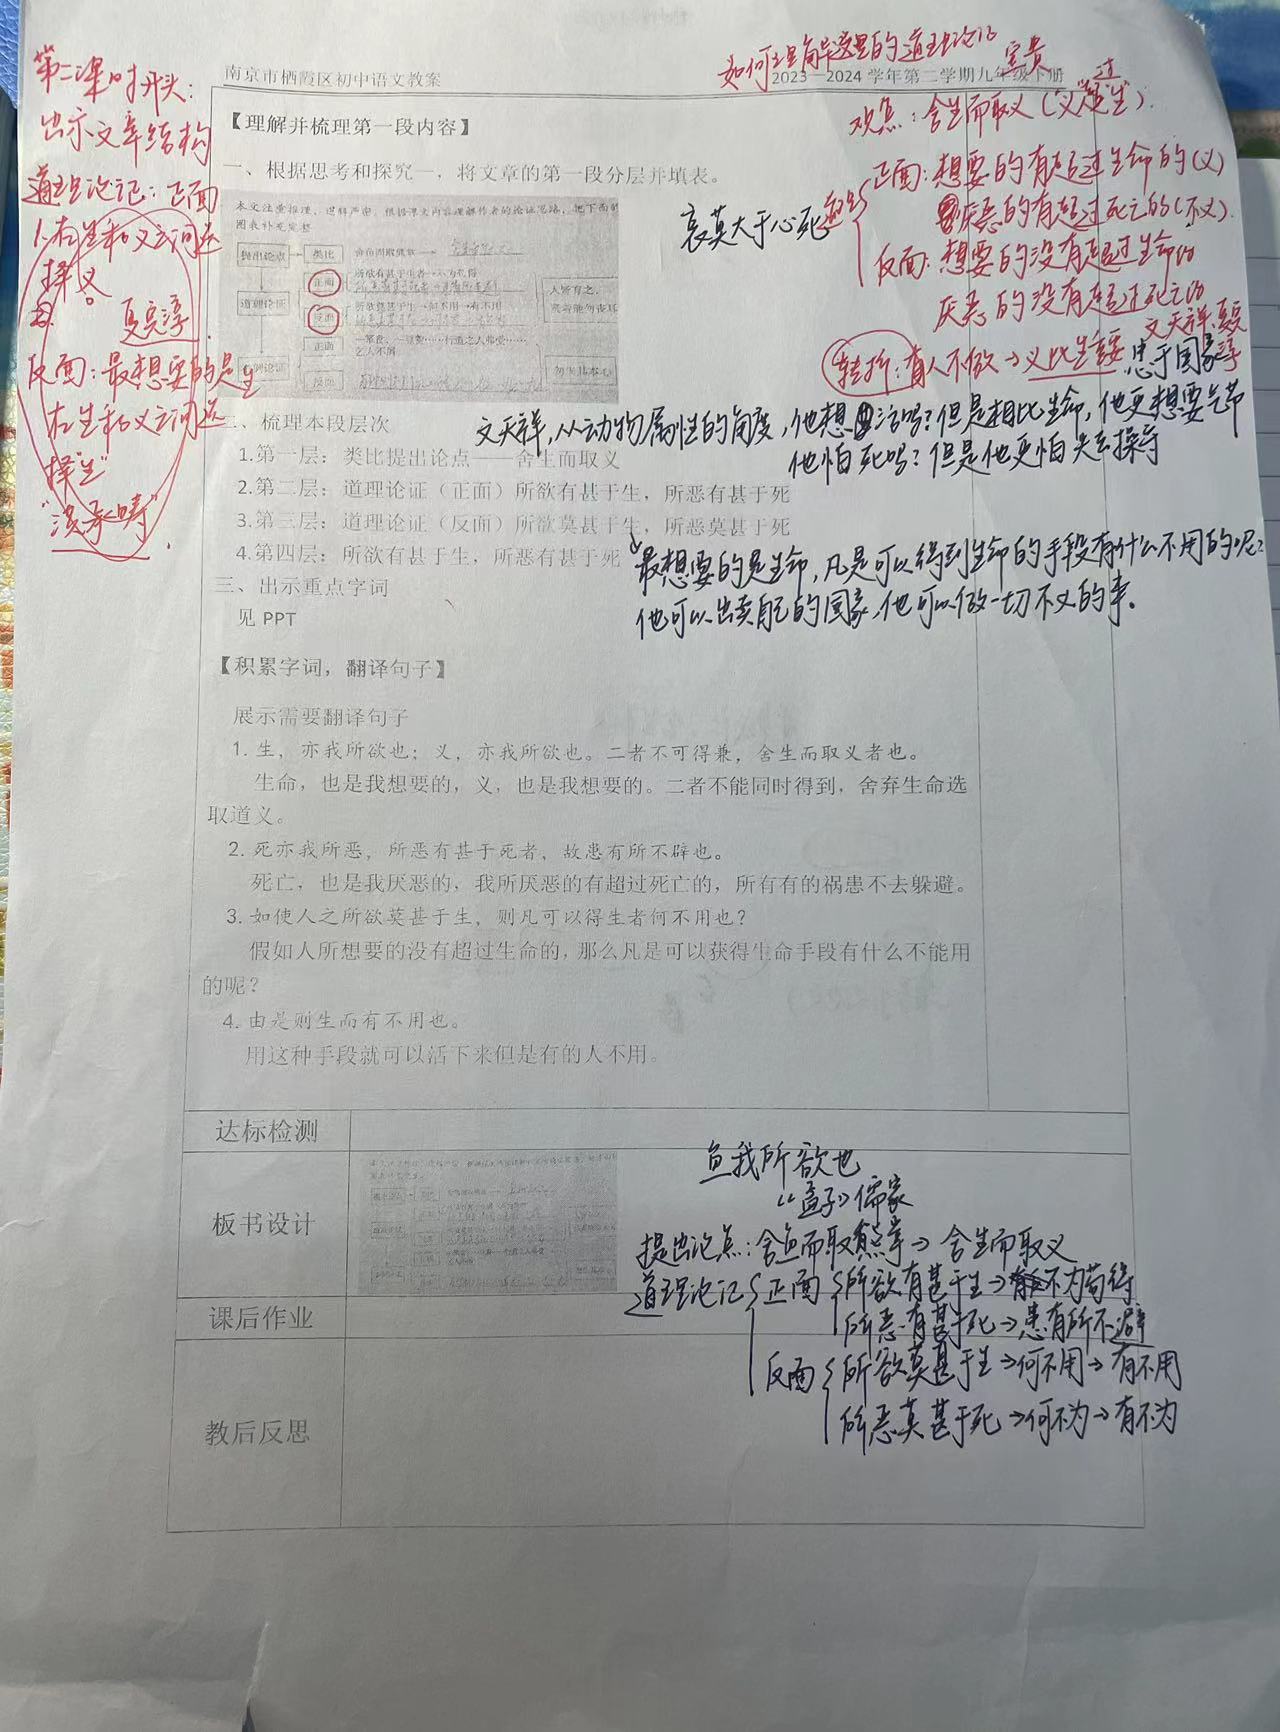 如何理解这里的道理论证
南京市栖霞区初中语文教案
2023—2024 学年第二学期九年级下册
第二课时开头:
出示文章结构
道理论证:正面
1.在生和义之间选
择义。
夏完淳
反面:最想要的是生
在生和义之间选
择“生”
“洪承畴”.
宝贵
观点:舍生而取义(“义”超过“生”).
正面:想要的有超过生命的(义)
厌恶的有超过死亡的(不义).
反面:想要的没有超过生命的
厌恶的没有超过死亡的
转折:有人不做→义比生重要
文天祥、夏完淳
忠于国家
哀莫大于心死
【理解并梳理第一段内容】
一、根据思考和探究一,将文章的第一段分层并填表。
本文注重推理,逻辑严密。根据课文内容理解作者的论证思路,把下面的
图表补充完整
提出论点 类比
正面 所欲有甚于生者→不为苟得
道理论证
反面 所欲莫甚于生→何不用→有不用
人皆有之,
贤者能勿丧耳
正面 一箪食,一豆羹……行道之人弗受……
之人不屑
反面
二、梳理本段层次
1.第一层:类比提出论点——舍生而取义
2.第二层:道理论证(正面)所欲有甚于生,所恶有甚于死
3.第三层:道理论证(反面)所欲莫甚于生,所恶莫甚于死
4.第四层:所欲有甚于生,所恶有甚于死
文天祥,从动物属性的角度,他想活吗?但是相比生命,他更想要气节
他怕死吗?但是他更怕失去操守
最想要的是生命,凡是可以得到生命的手段有什么不用的呢?
他可以出卖自己的国家,他可以做一切不义的事.
三、出示重点字词
见 PPT
【积累字词,翻译句子】
展示需要翻译句子
1. 生,亦我所欲也;义,亦我所欲也。二者不可得兼,舍生而取义者也。
生命,也是我想要的,义,也是我想要的。二者不能同时得到,舍弃生命选
取道义。
2. 死亦我所恶,所恶有甚于死者,故患有所不辟也。
死亡,也是我厌恶的,我所厌恶的有超过死亡的,所有有的祸患不去躲避。
3. 如使人之所欲莫甚于生,则凡可以得生者何不用也?
假如人所想要的没有超过生命的,那么凡是可以获得生命手段有什么不能用
的呢?
4. 由是则生而有不用也。
用这种手段就可以活下来但是有的人不用。
达标检测
板书设计
鱼我所欲也
《孟子》儒家
提出论点:舍鱼而取熊掌→舍生而取义
道理论证 正面 所欲有甚于生→不为苟得
所恶有甚于死→患有所不避
反面 所欲莫甚于生→何不用→有不用
所恶莫甚于死→何不为→有不为
课后作业
教后反思